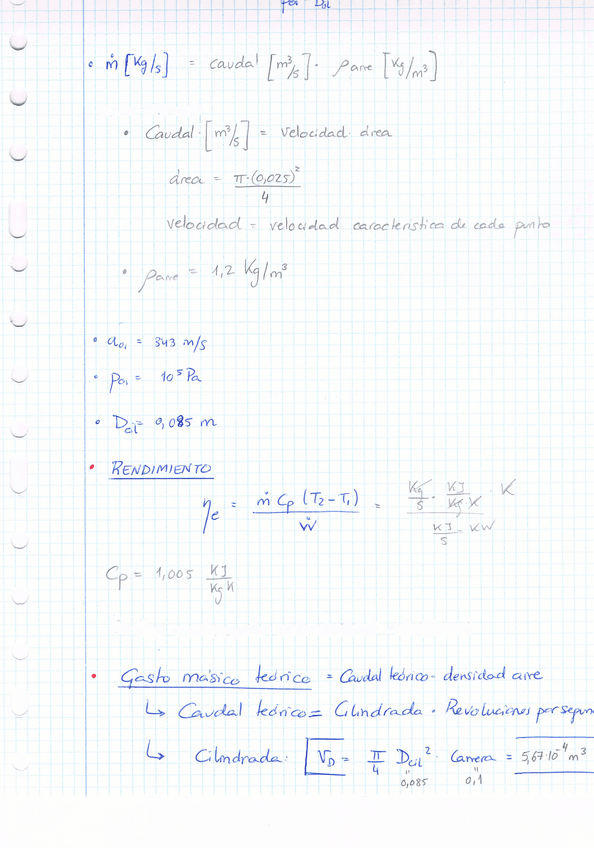 por Dcil
• ṁ [Kg/s] = caudal [m³/s] · ρaire [Kg/m³]
• Caudal [m³/s] = velocidad · área
área = π·(0,025)²/4
velocidad = velocidad característica de cada punto
• ρaire = 1,2 Kg/m³
• a01 = 343 m/s
• p01 = 10⁵ Pa
• Dcil = 0,085 m
• RENDIMIENTO
ηe = ṁ Cp (T2 - T1) / Ẇ = (Kg/s · KJ/(Kg K) · K) / (KJ/s = KW)
Cp = 1,005 KJ/(Kg K)
• Gasto másico teórico = Caudal teórico · densidad aire
↳ Caudal teórico = Cilindrada · Revoluciones por segun
↳ Cilindrada: VD = π/4 Dcil² · Carrera = 5,67·10⁻⁴ m³
" 0,085 " 0,1